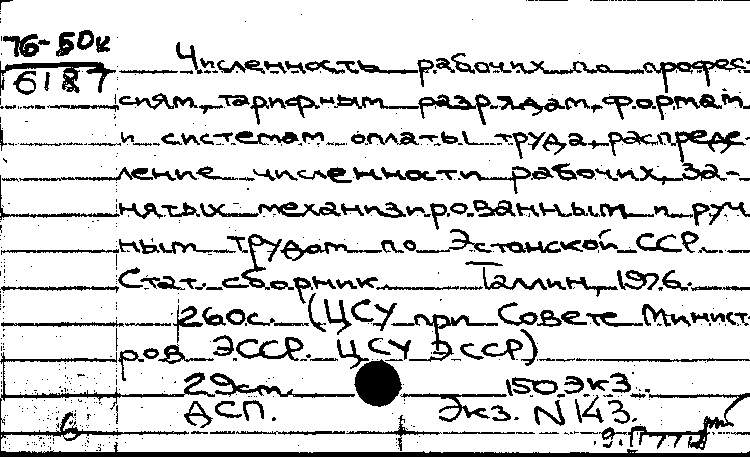 76-50к
6187
Численность рабочих по профес-
сиям, тарифным разрядам, формам
и системам оплаты труда, распреде-
ление численности рабочих, за-
нятых механизированным и руч
ным трудом по Эстонской ССР.
Стат. сборник. Таллин, 1976.
260с. (ЦСУ при Совете Минист-
ров ЭССР. ЦСУ ЭССР)
29см. 150 экз.
ДСП. Экз. N 143.
6